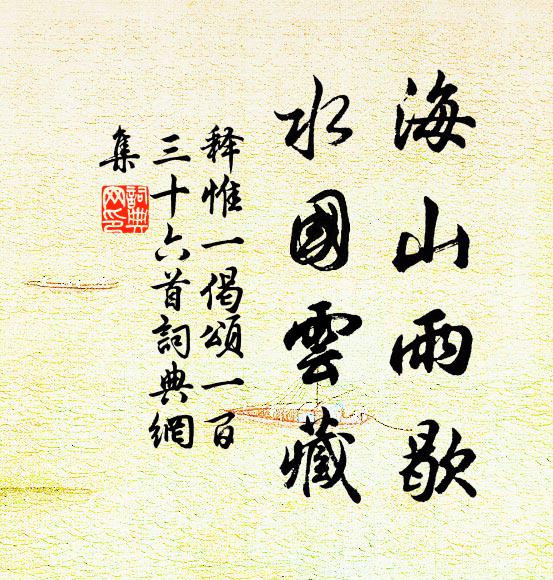 海山雨歇
水國雲藏
释惟一偈頌一百
三十六首詞典網
集
詞典
网印